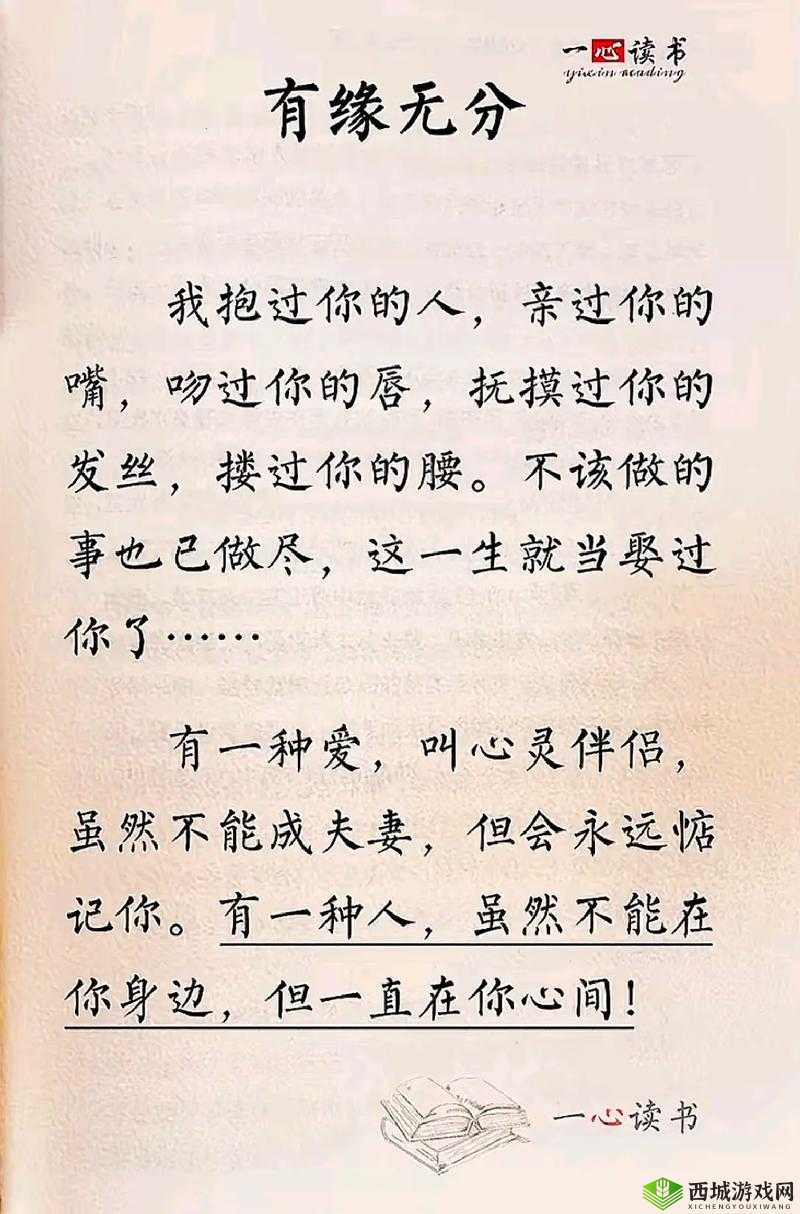 一心读书
yixin reading
有缘无分
我抱过你的人，亲过你的
嘴，吻过你的唇，抚摸过你的
发丝，搂过你的腰。不该做的
事也已做尽，这一生就当娶过
你了……
有一种爱，叫心灵伴侣，
虽然不能成夫妻，但会永远惦
记你。有一种人，虽然不能在
你身边，但一直在你心间！
一心读书
西城游戏网
XICHENGYOUXIWANG